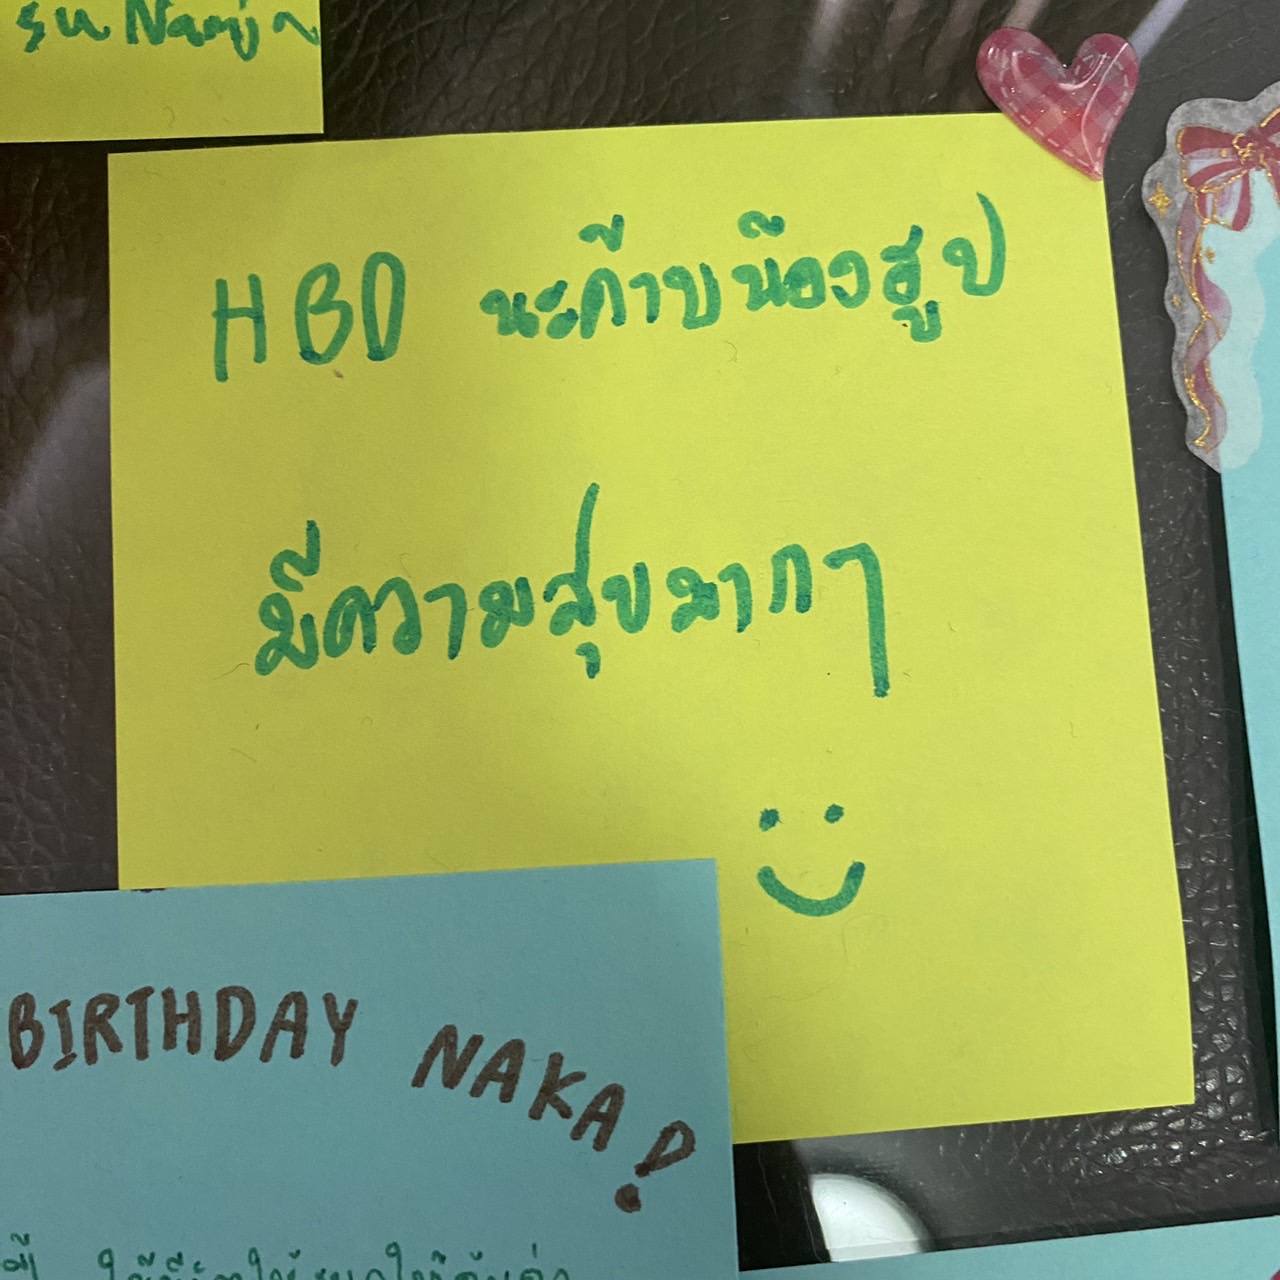 HBD นะค้าบน้องซูป
มีความสุขมากๆ
BIRTHDAY NAKA!